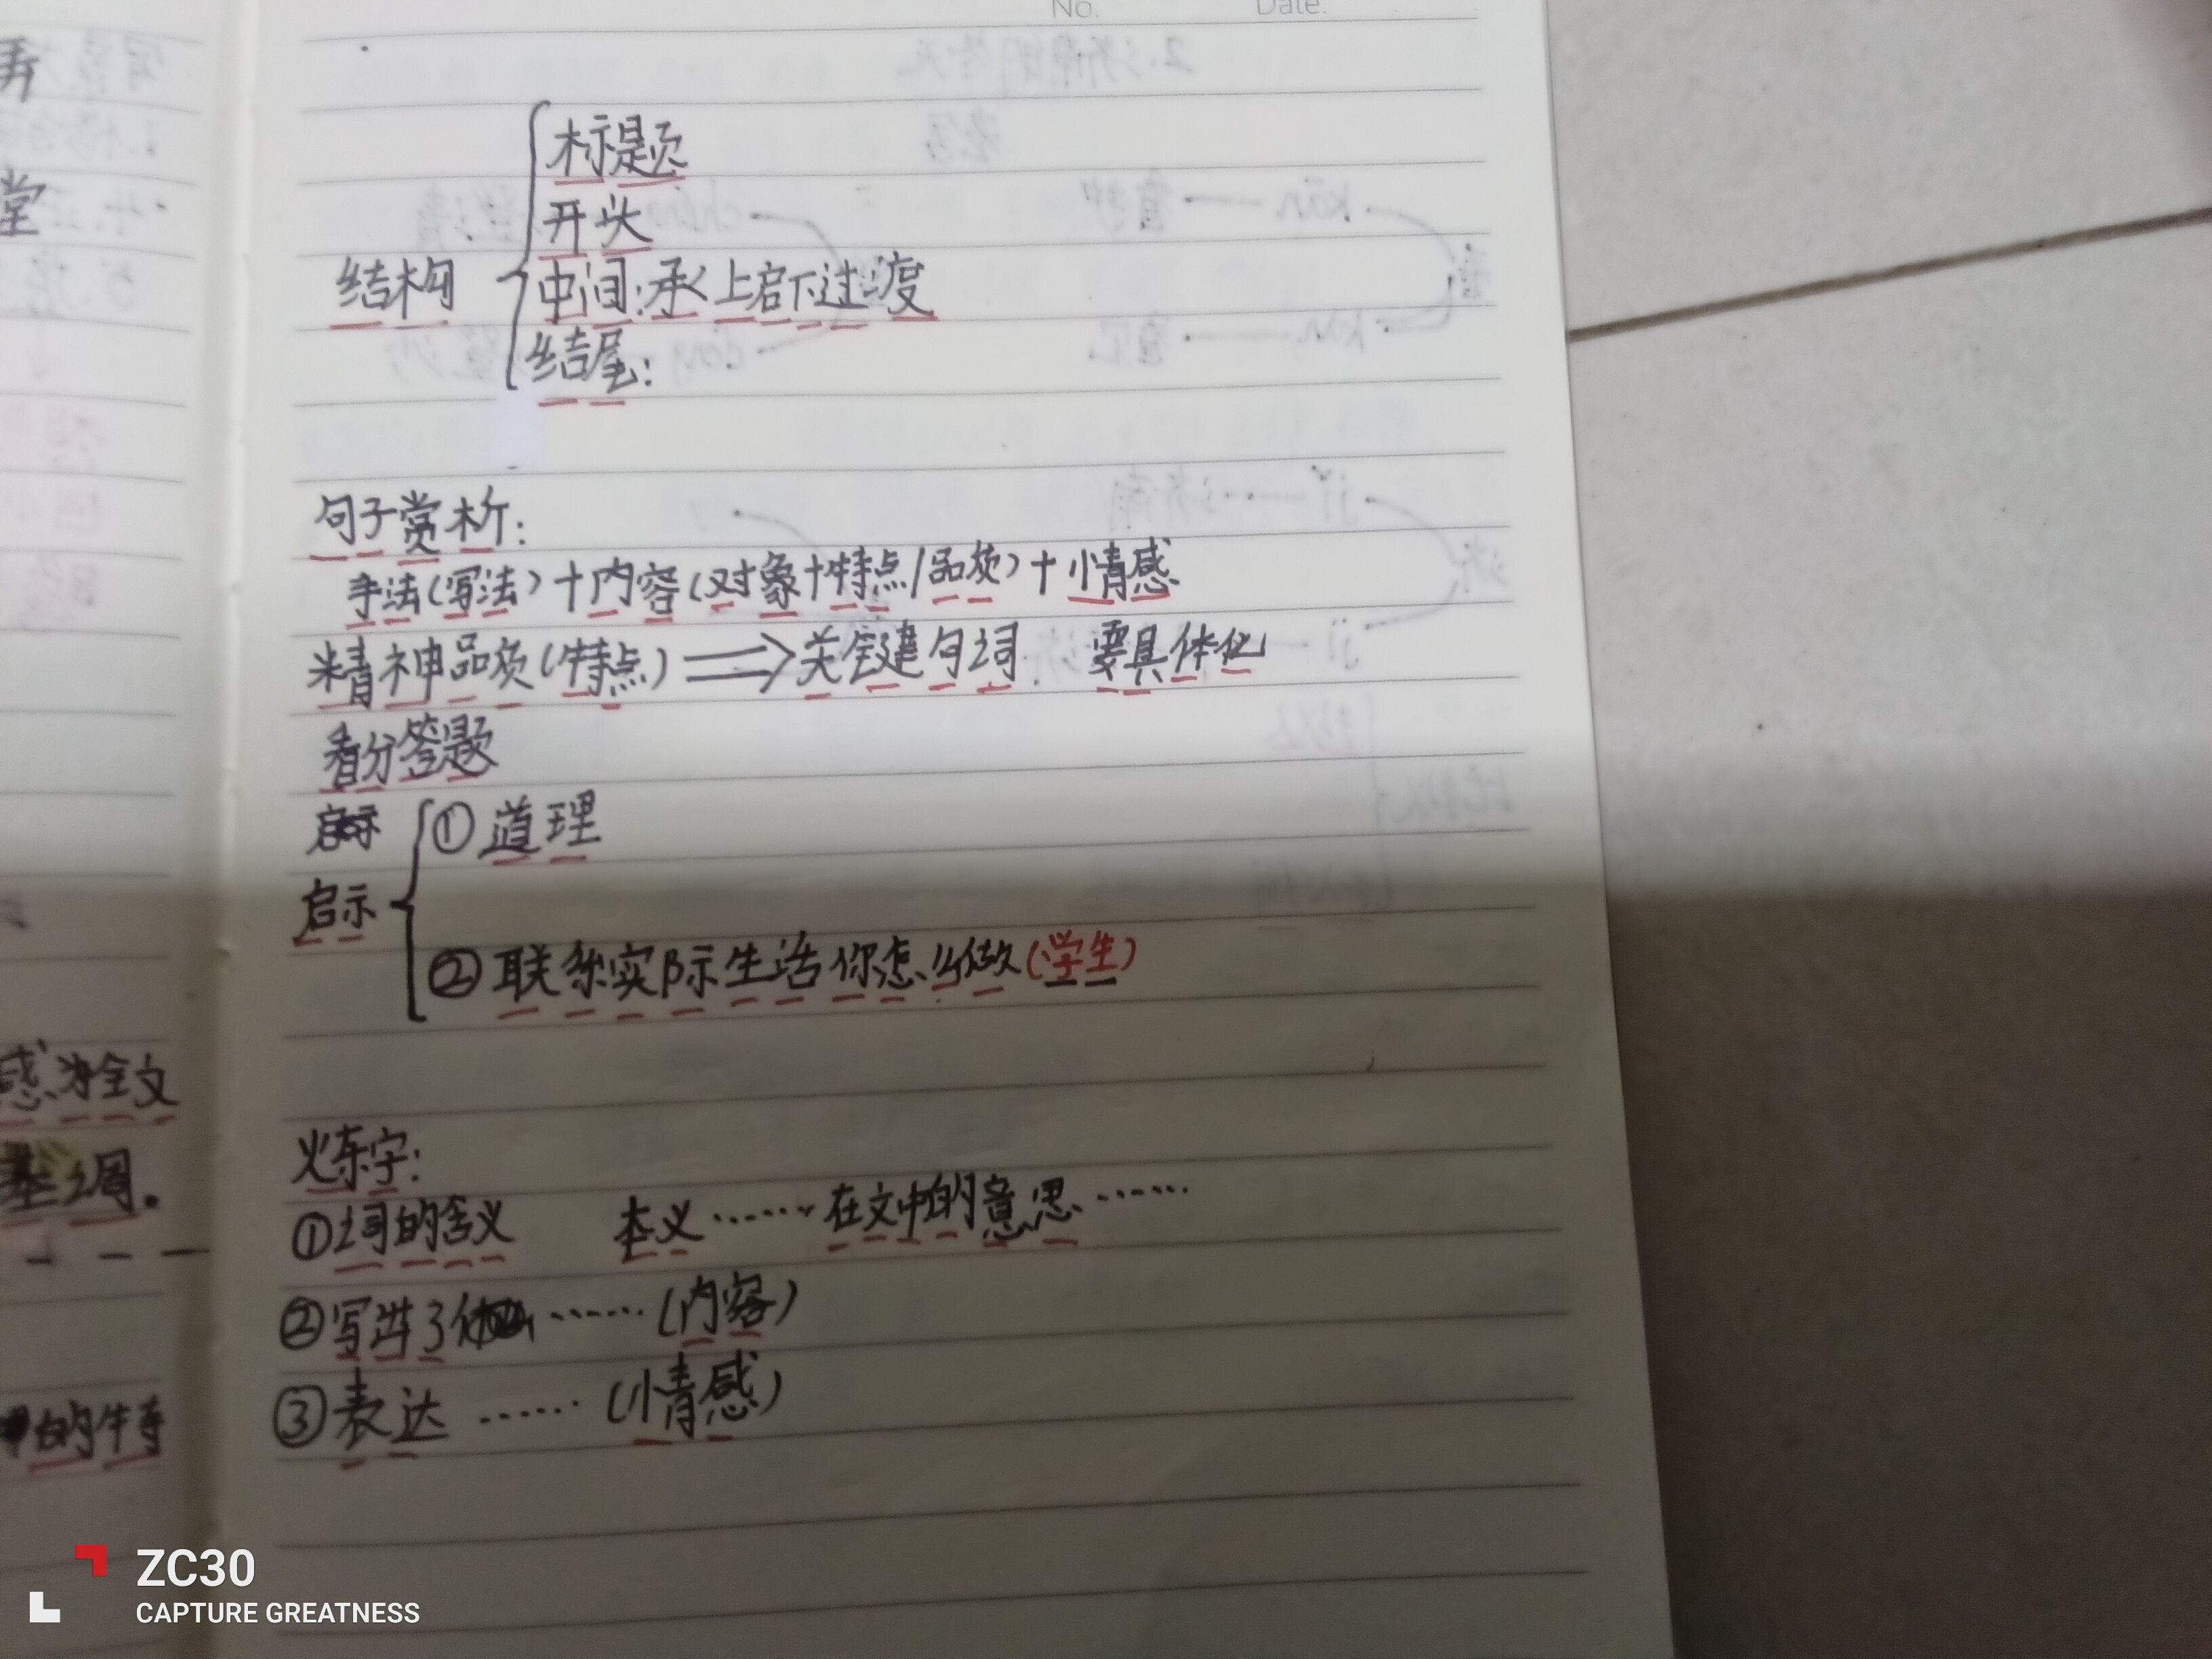 No. Date.
标题
开头
结构
中间:承上启下过渡
结尾:
句子赏析:
手法(写法)+内容(对象+特点/品质)+情感
精神品质(特点)⇒关键句词 要具体化
看分答题
①道理
启示
②联系实际生活你怎么做(学生)
炼字:
①词的含义 本义……在文中的意思……
②写出了……(内容)
③表达……(情感)
弄
堂
感为全文
基调。
的牛寺
ZC30
CAPTURE GREATNESS